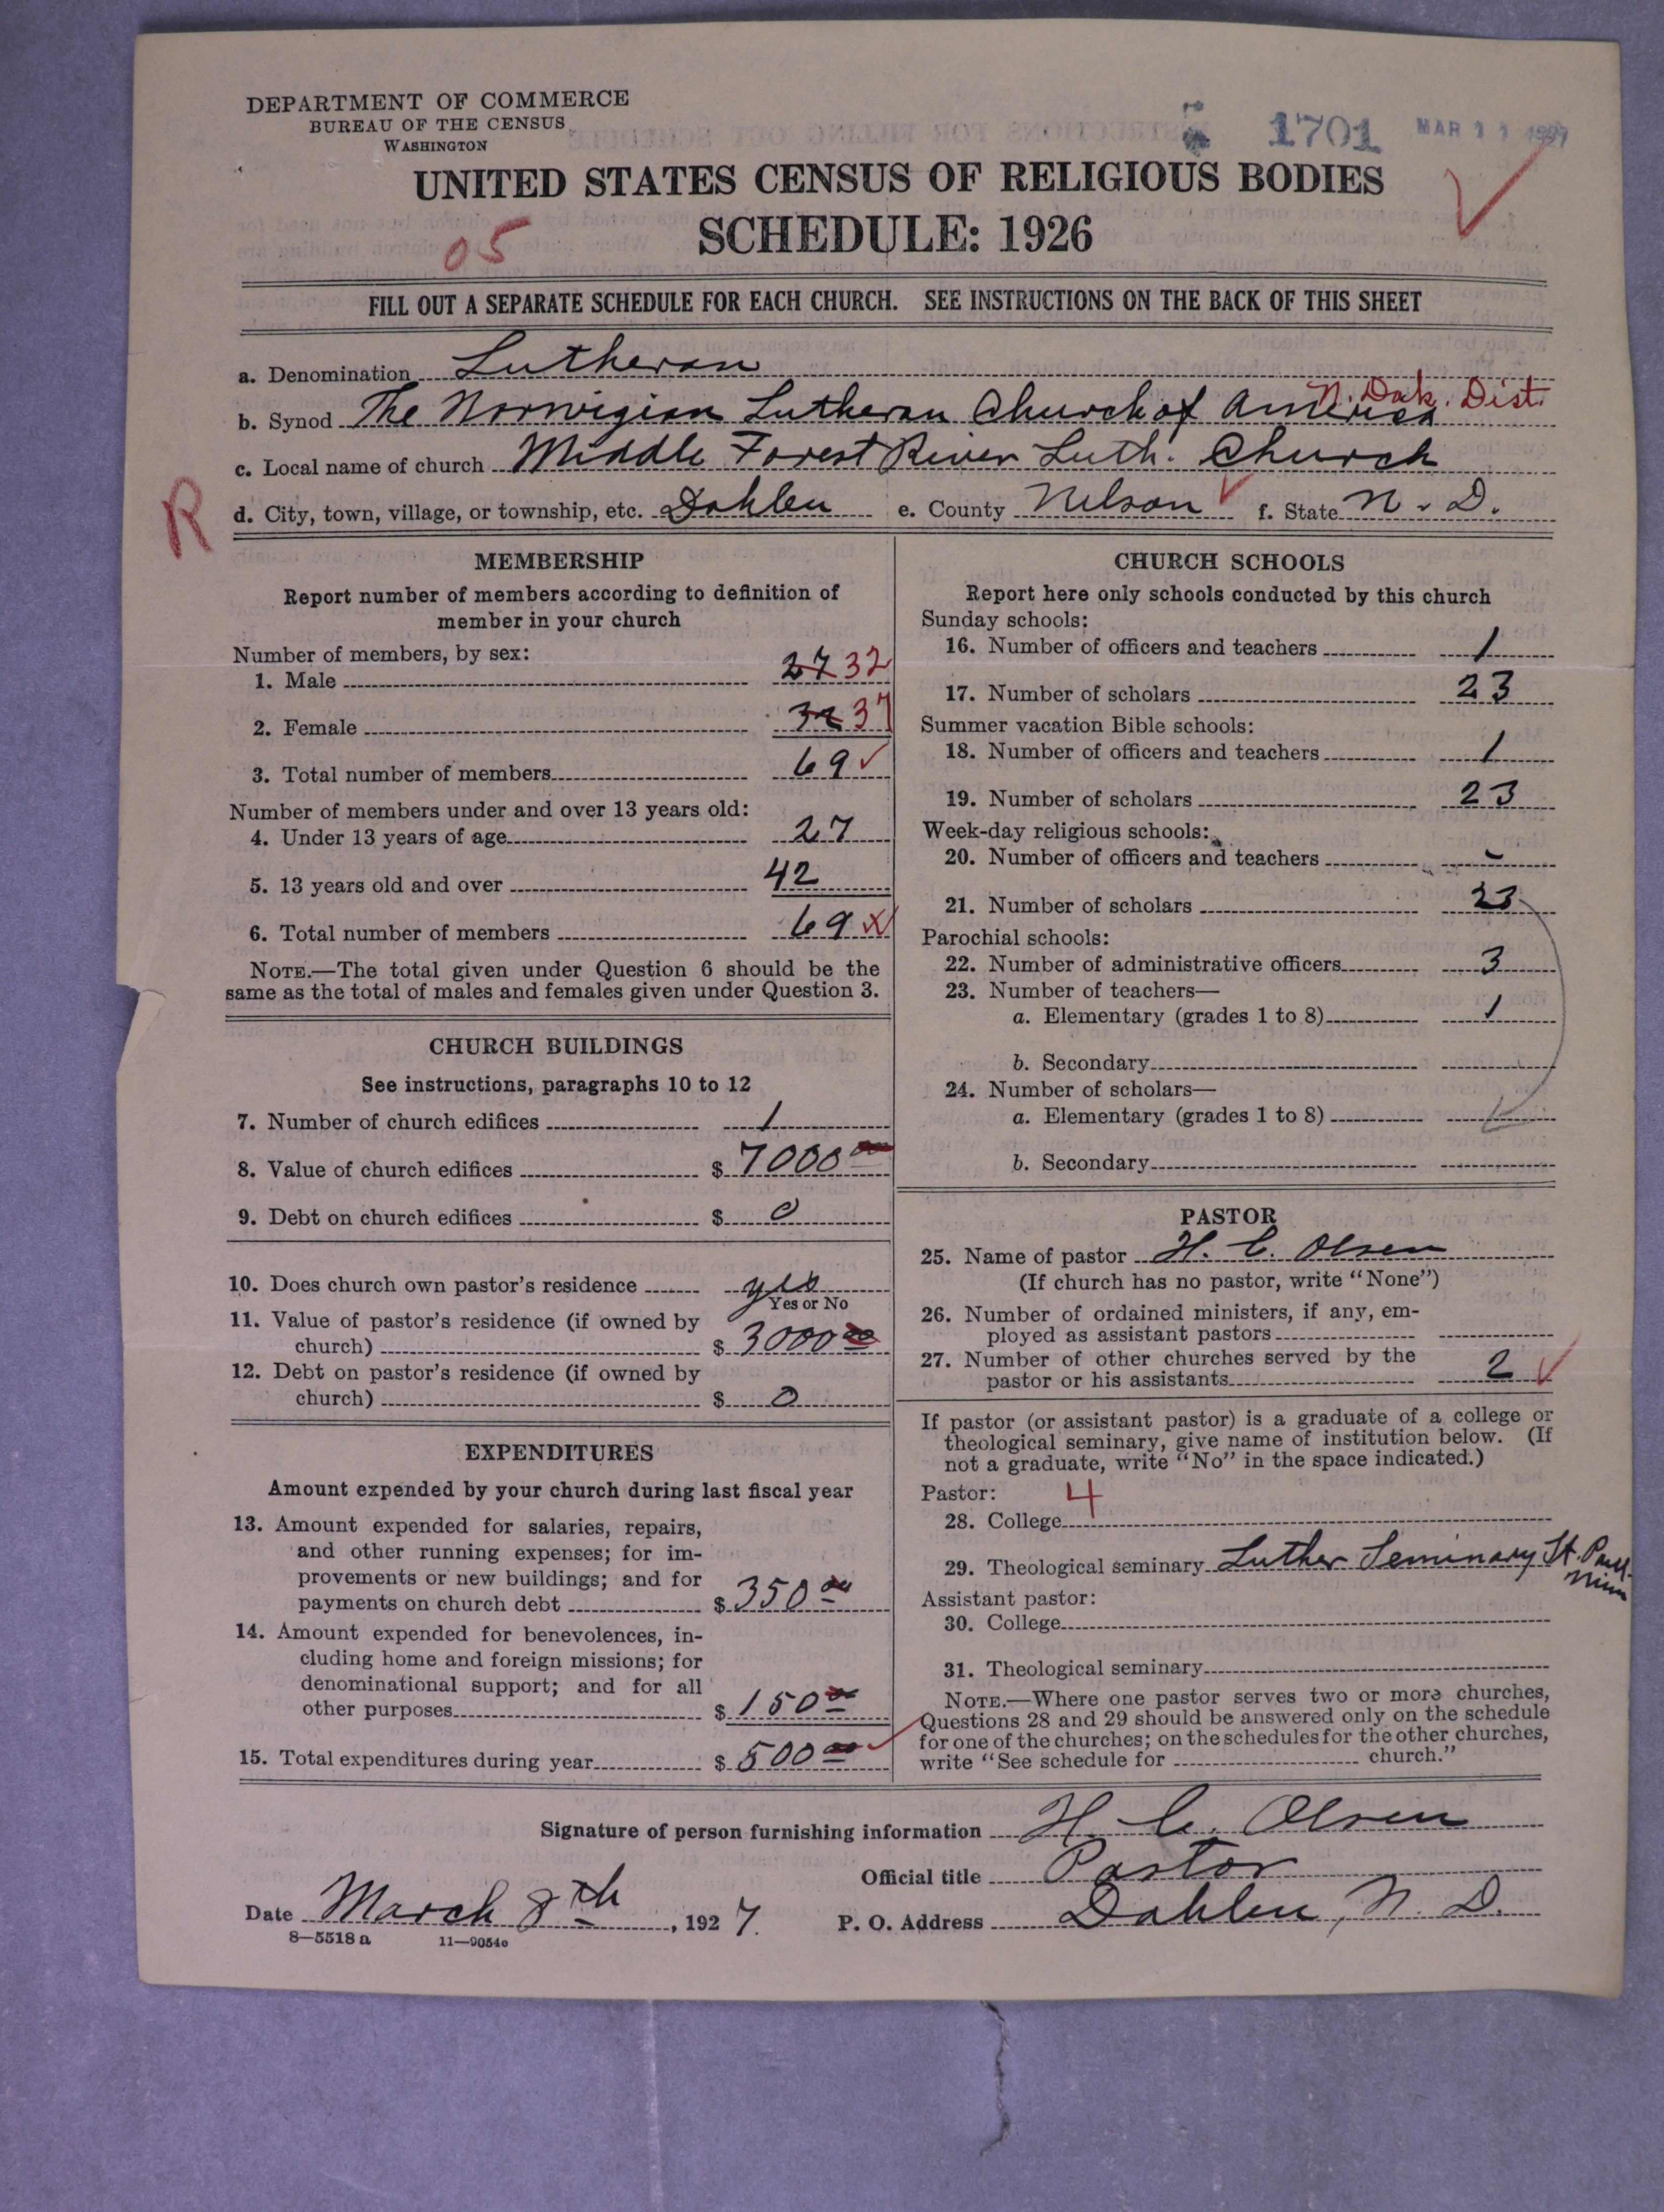 DEPARTMENT OF COMMERCE
BUREAU OF THE CENSUS
WASHINGTON
1701 MAR 11 1927
UNITED STATES CENSUS OF RELIGIOUS BODIES
SCHEDULE: 1926
05
FILL OUT A SEPARATE SCHEDULE FOR EACH CHURCH. SEE INSTRUCTIONS ON THE BACK OF THIS SHEET
a. Denomination Lutheran
b. Synod The Norwegian Lutheran Church of America N. Dak. Dist.
c. Local name of church Middle Forest River Luth. Church
R
d. City, town, village, or township, etc. Dahlen e. County Nelson f. State N. D.
MEMBERSHIP
Report number of members according to definition of
member in your church
Number of members, by sex:
1. Male 27 32
2. Female 32 37
3. Total number of members 69
Number of members under and over 13 years old:
4. Under 13 years of age 27
5. 13 years old and over 42
6. Total number of members 69
NOTE.—The total given under Question 6 should be the
same as the total of males and females given under Question 3.
CHURCH BUILDINGS
See instructions, paragraphs 10 to 12
7. Number of church edifices 1
8. Value of church edifices $ 7000 00
9. Debt on church edifices $ 0
10. Does church own pastor's residence yes
Yes or No
11. Value of pastor's residence (if owned by
church) $ 3000 00
12. Debt on pastor's residence (if owned by
church) $ 0
EXPENDITURES
Amount expended by your church during last fiscal year
13. Amount expended for salaries, repairs,
and other running expenses; for im-
provements or new buildings; and for
payments on church debt $ 350 00
14. Amount expended for benevolences, in-
cluding home and foreign missions; for
denominational support; and for all
other purposes $ 150 00
15. Total expenditures during year $ 500 00
CHURCH SCHOOLS
Report here only schools conducted by this church
Sunday schools:
16. Number of officers and teachers 1
17. Number of scholars 23
Summer vacation Bible schools:
18. Number of officers and teachers 1
19. Number of scholars 23
Week-day religious schools:
20. Number of officers and teachers -
21. Number of scholars 23
Parochial schools:
22. Number of administrative officers 3
23. Number of teachers—
a. Elementary (grades 1 to 8) 1
b. Secondary
24. Number of scholars—
a. Elementary (grades 1 to 8)
b. Secondary
PASTOR
25. Name of pastor H. C. Olsen
(If church has no pastor, write "None")
26. Number of ordained ministers, if any, em-
ployed as assistant pastors
27. Number of other churches served by the
pastor or his assistants 2
If pastor (or assistant pastor) is a graduate of a college or
theological seminary, give name of institution below. (If
not a graduate, write "No" in the space indicated.)
Pastor: 4
28. College
29. Theological seminary Luther Seminary St. Paul
Minn
Assistant pastor:
30. College
31. Theological seminary
NOTE.—Where one pastor serves two or more churches,
Questions 28 and 29 should be answered only on the schedule
for one of the churches; on the schedules for the other churches,
write "See schedule for church."
Signature of person furnishing information H. C. Olsen
Official title Pastor
Date March 8th, 1927. P. O. Address Dahlen, N. D.
8—5518 a 11—9054c